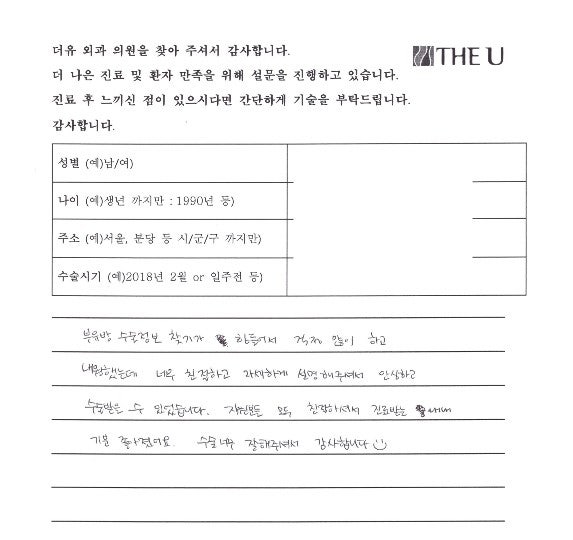 더유 외과 의원을 찾아 주셔서 감사합니다.
THE U
더 나은 진료 및 환자 만족을 위해 설문을 진행하고 있습니다.
진료 후 느끼신 점이 있으시다면 간단하게 기술을 부탁드립니다.
감사합니다.
성별 (예)남/여)
나이 (예)생년 까지만 : 1990년 등)
주소 (예)서울, 분당 등 시/군/구 까지만)
수술시기 (예)2018년 2월 or 일주전 등)
부유방 수술정보 찾기가 힘들어서 걱정 많이 하고
내원했는데 너무 친절하고 자세하게 설명해주셔서 안심하고
수술받을 수 있었습니다. 친절하셔서 진료받는
기분 좋아졌어요 수술 너무 잘해주셔서 감사합니다